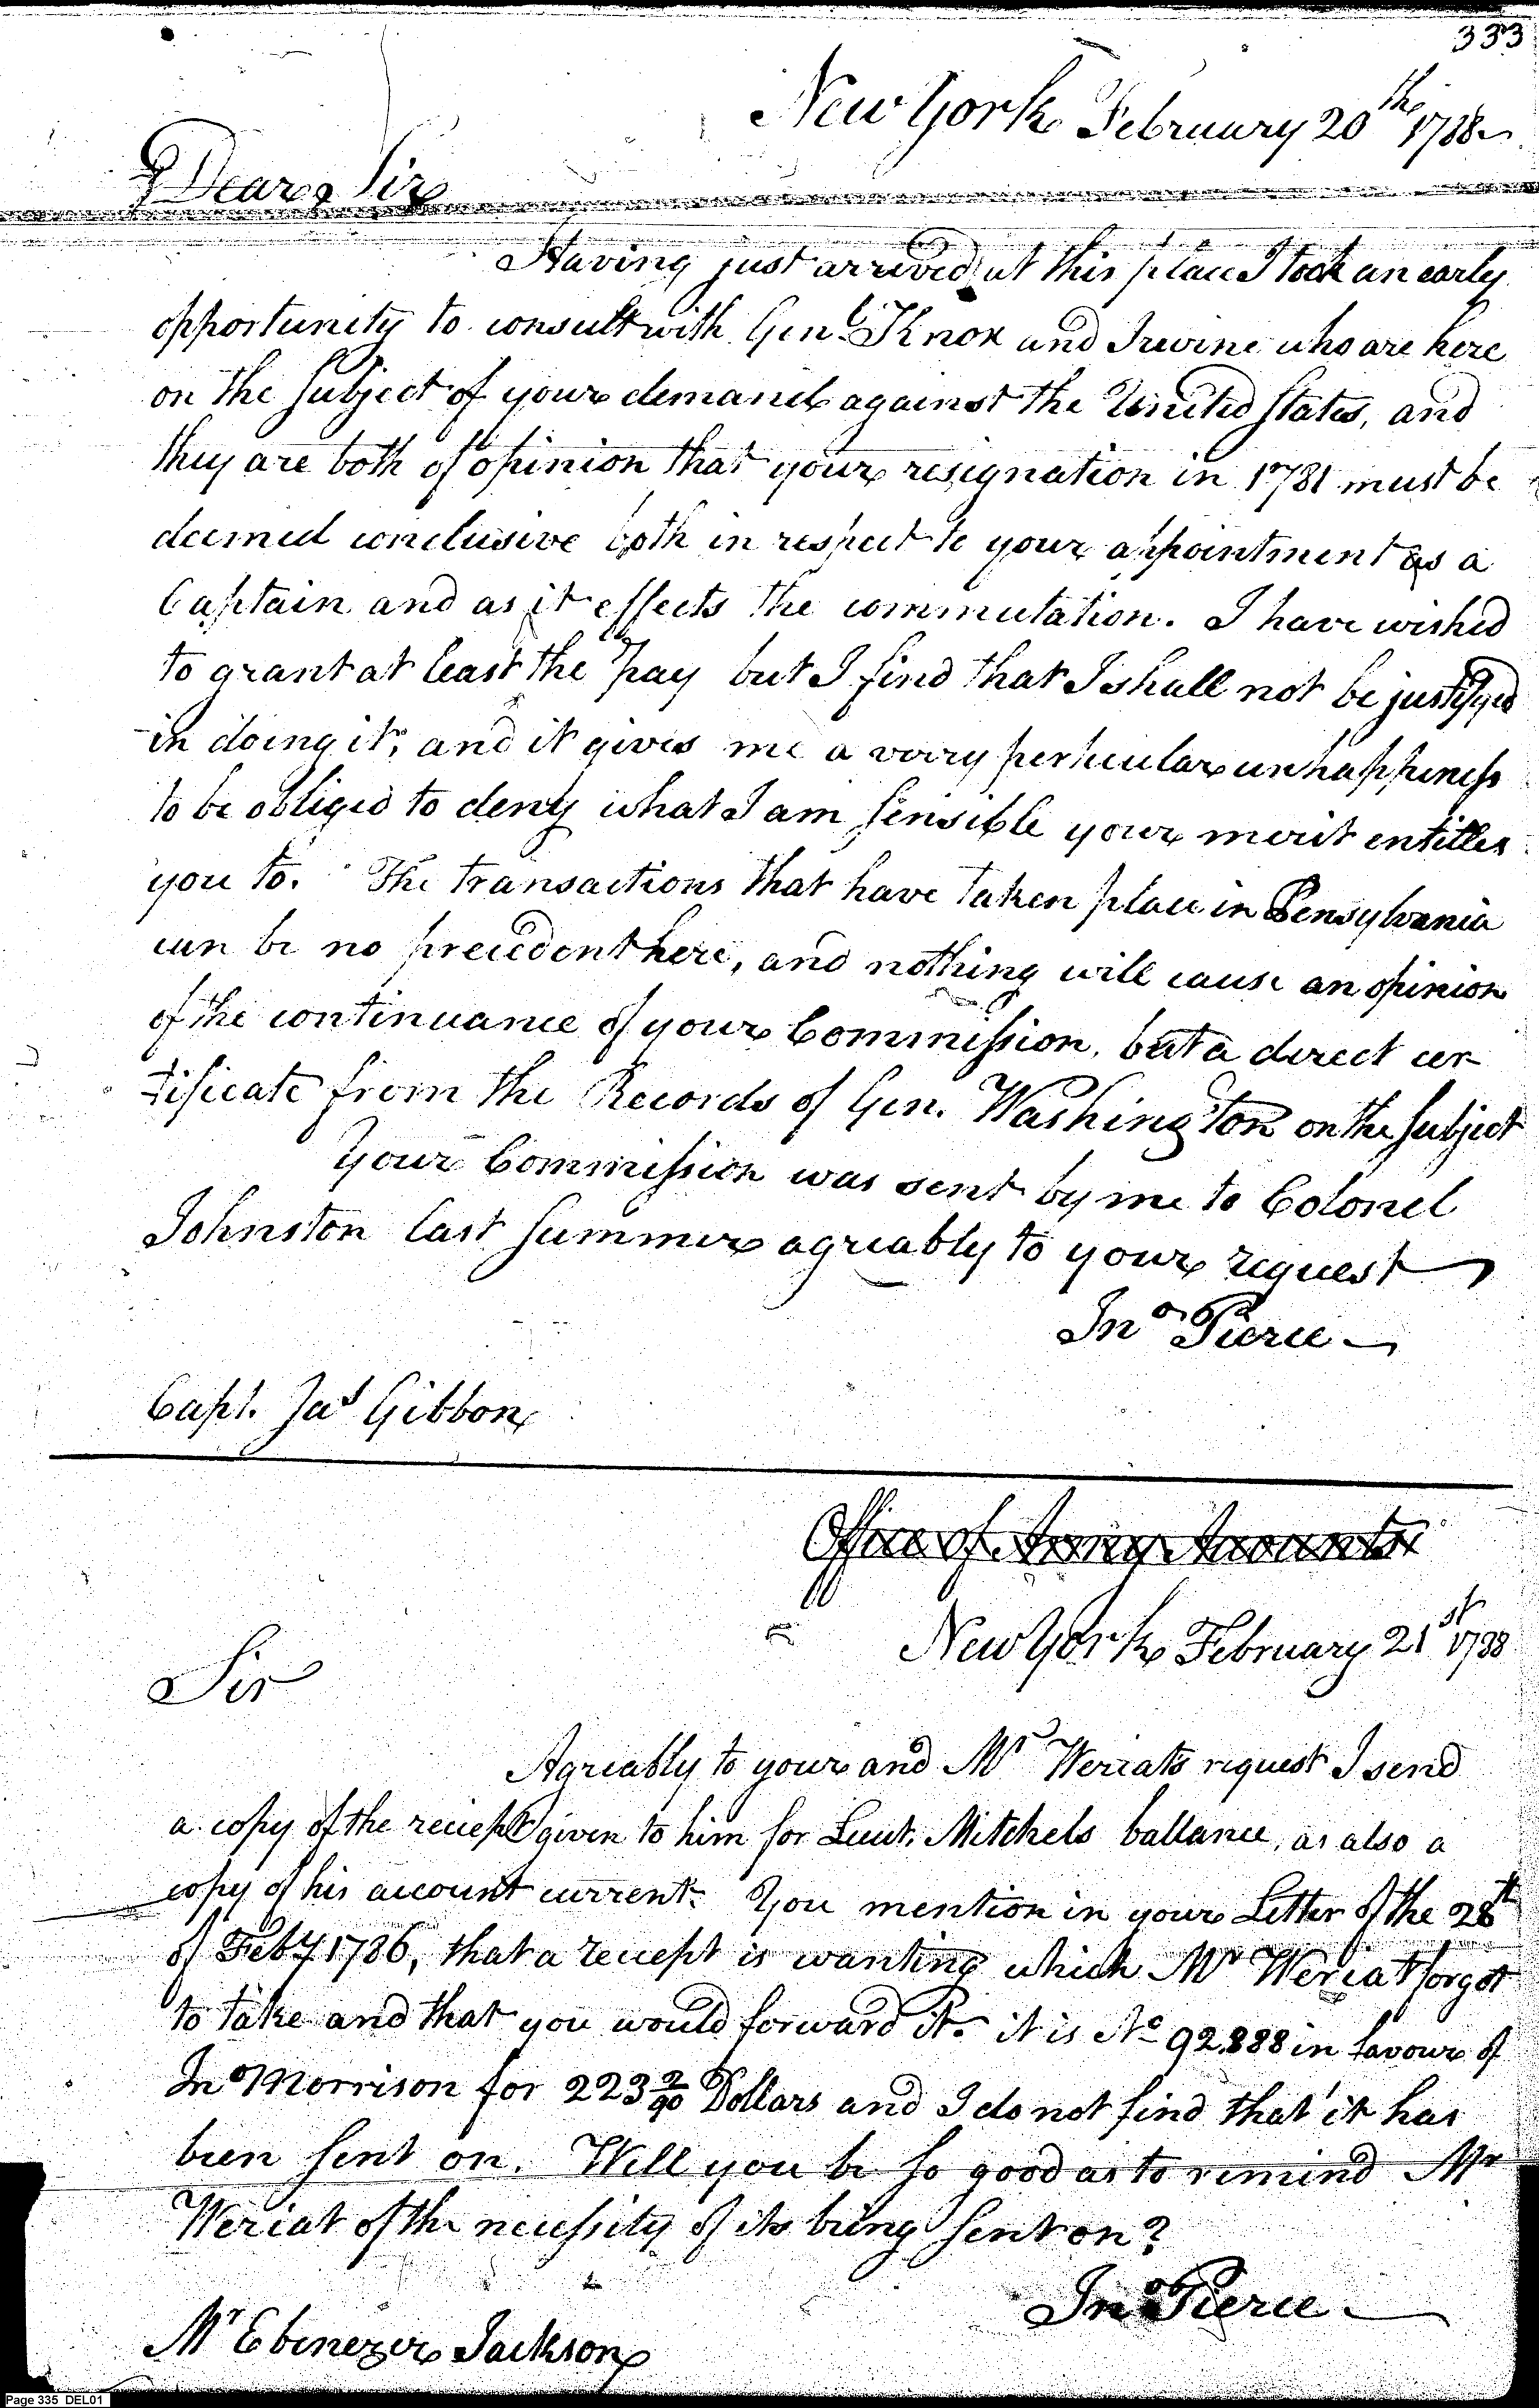 333
New York February 20th 1788
Dear Sir
Having just arrived at this place I took an early
opportunity to consult with Genl. Knox and Irwine who are here
on the subject of your demands against the United States, and
they are both of opinion that your resignation in 1781 must be
deemed conclusive both in respect to your appointment as a
Captain and as it effects the commutation. I have wished
to grant at least the pay but I find that I shall not be justifyed
in doing it, and it gives me a verry perticular unhappiness
to be obliged to deny what I am sensible your merit entitles
you to. The transactions that have taken place in Pensylvania
can be no precedent here, and nothing will cause an opinion
of the continuance of your Commission, but a direct cer
tificate from the Records of Gen. Washington on the subject
Your Commission was sent by me to Colonel
Johnston last summer agreably to your request
Jno Pierce
Capt. Jas Gibbon
Office of Army Accounts
New York February 21st 1788
Sir
Agreably to your and Mr Wereat's request I send
a copy of the reciept given to him for Lieut. Mitchels ballance, as also a
copy of his account current. You mention in your Letter of the 28th
of Feby 1786, that a reciept is wanting which Mr Wereat forgot
to take and that you would forward it. it is No 92888 in favour of
Jno Morrison for 223 2/90 Dollars and I do not find that it has
been sent on. Will you be so good as to remind Mr
Wereat of the necessity of its being sent on?
Jno Pierce
Mr Ebenezer Jackson
Page 335 DEL01